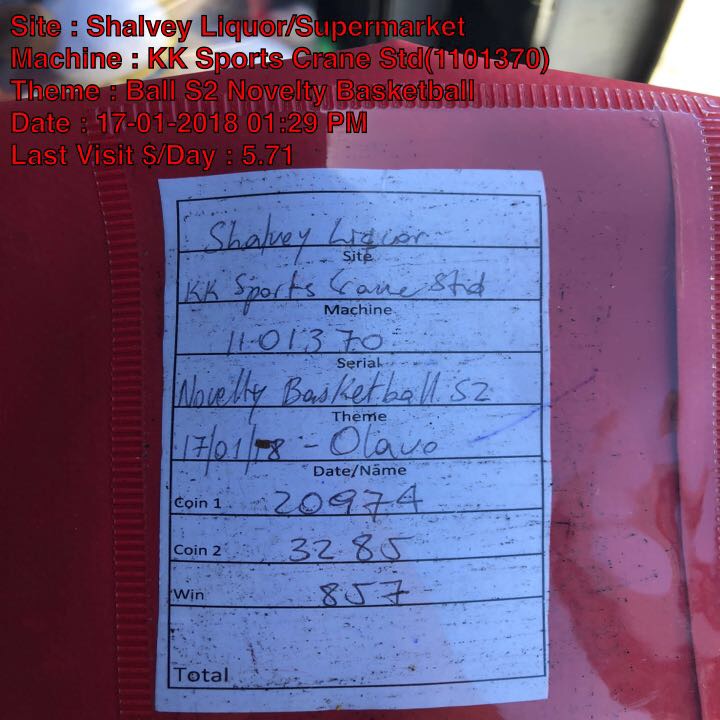 Site : Shalvey Liquor/Supermarket
Machine : KK Sports Crane Std(1101370)
Theme : Ball S2 Novelty Basketball
Date : 17-01-2018 01:29 PM
Last Visit $/Day : 5.71
Shalvey Liquor
Site
KK Sports Crane Std
Machine
1101370
Serial
Novelty Basketball S2
Theme
17/01/18 - Olavo
Date/Name
Coin 1 20974
Coin 2 3285
Win 857
Total